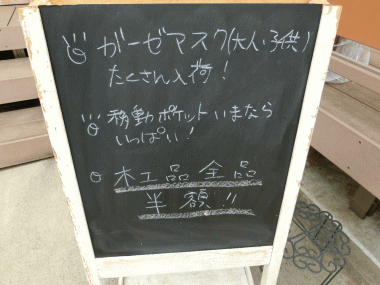 ガーゼマスク(大人・子供)
たくさん入荷!
移動ポケットいまなら
いっぱい!
木工品全品
半額!!